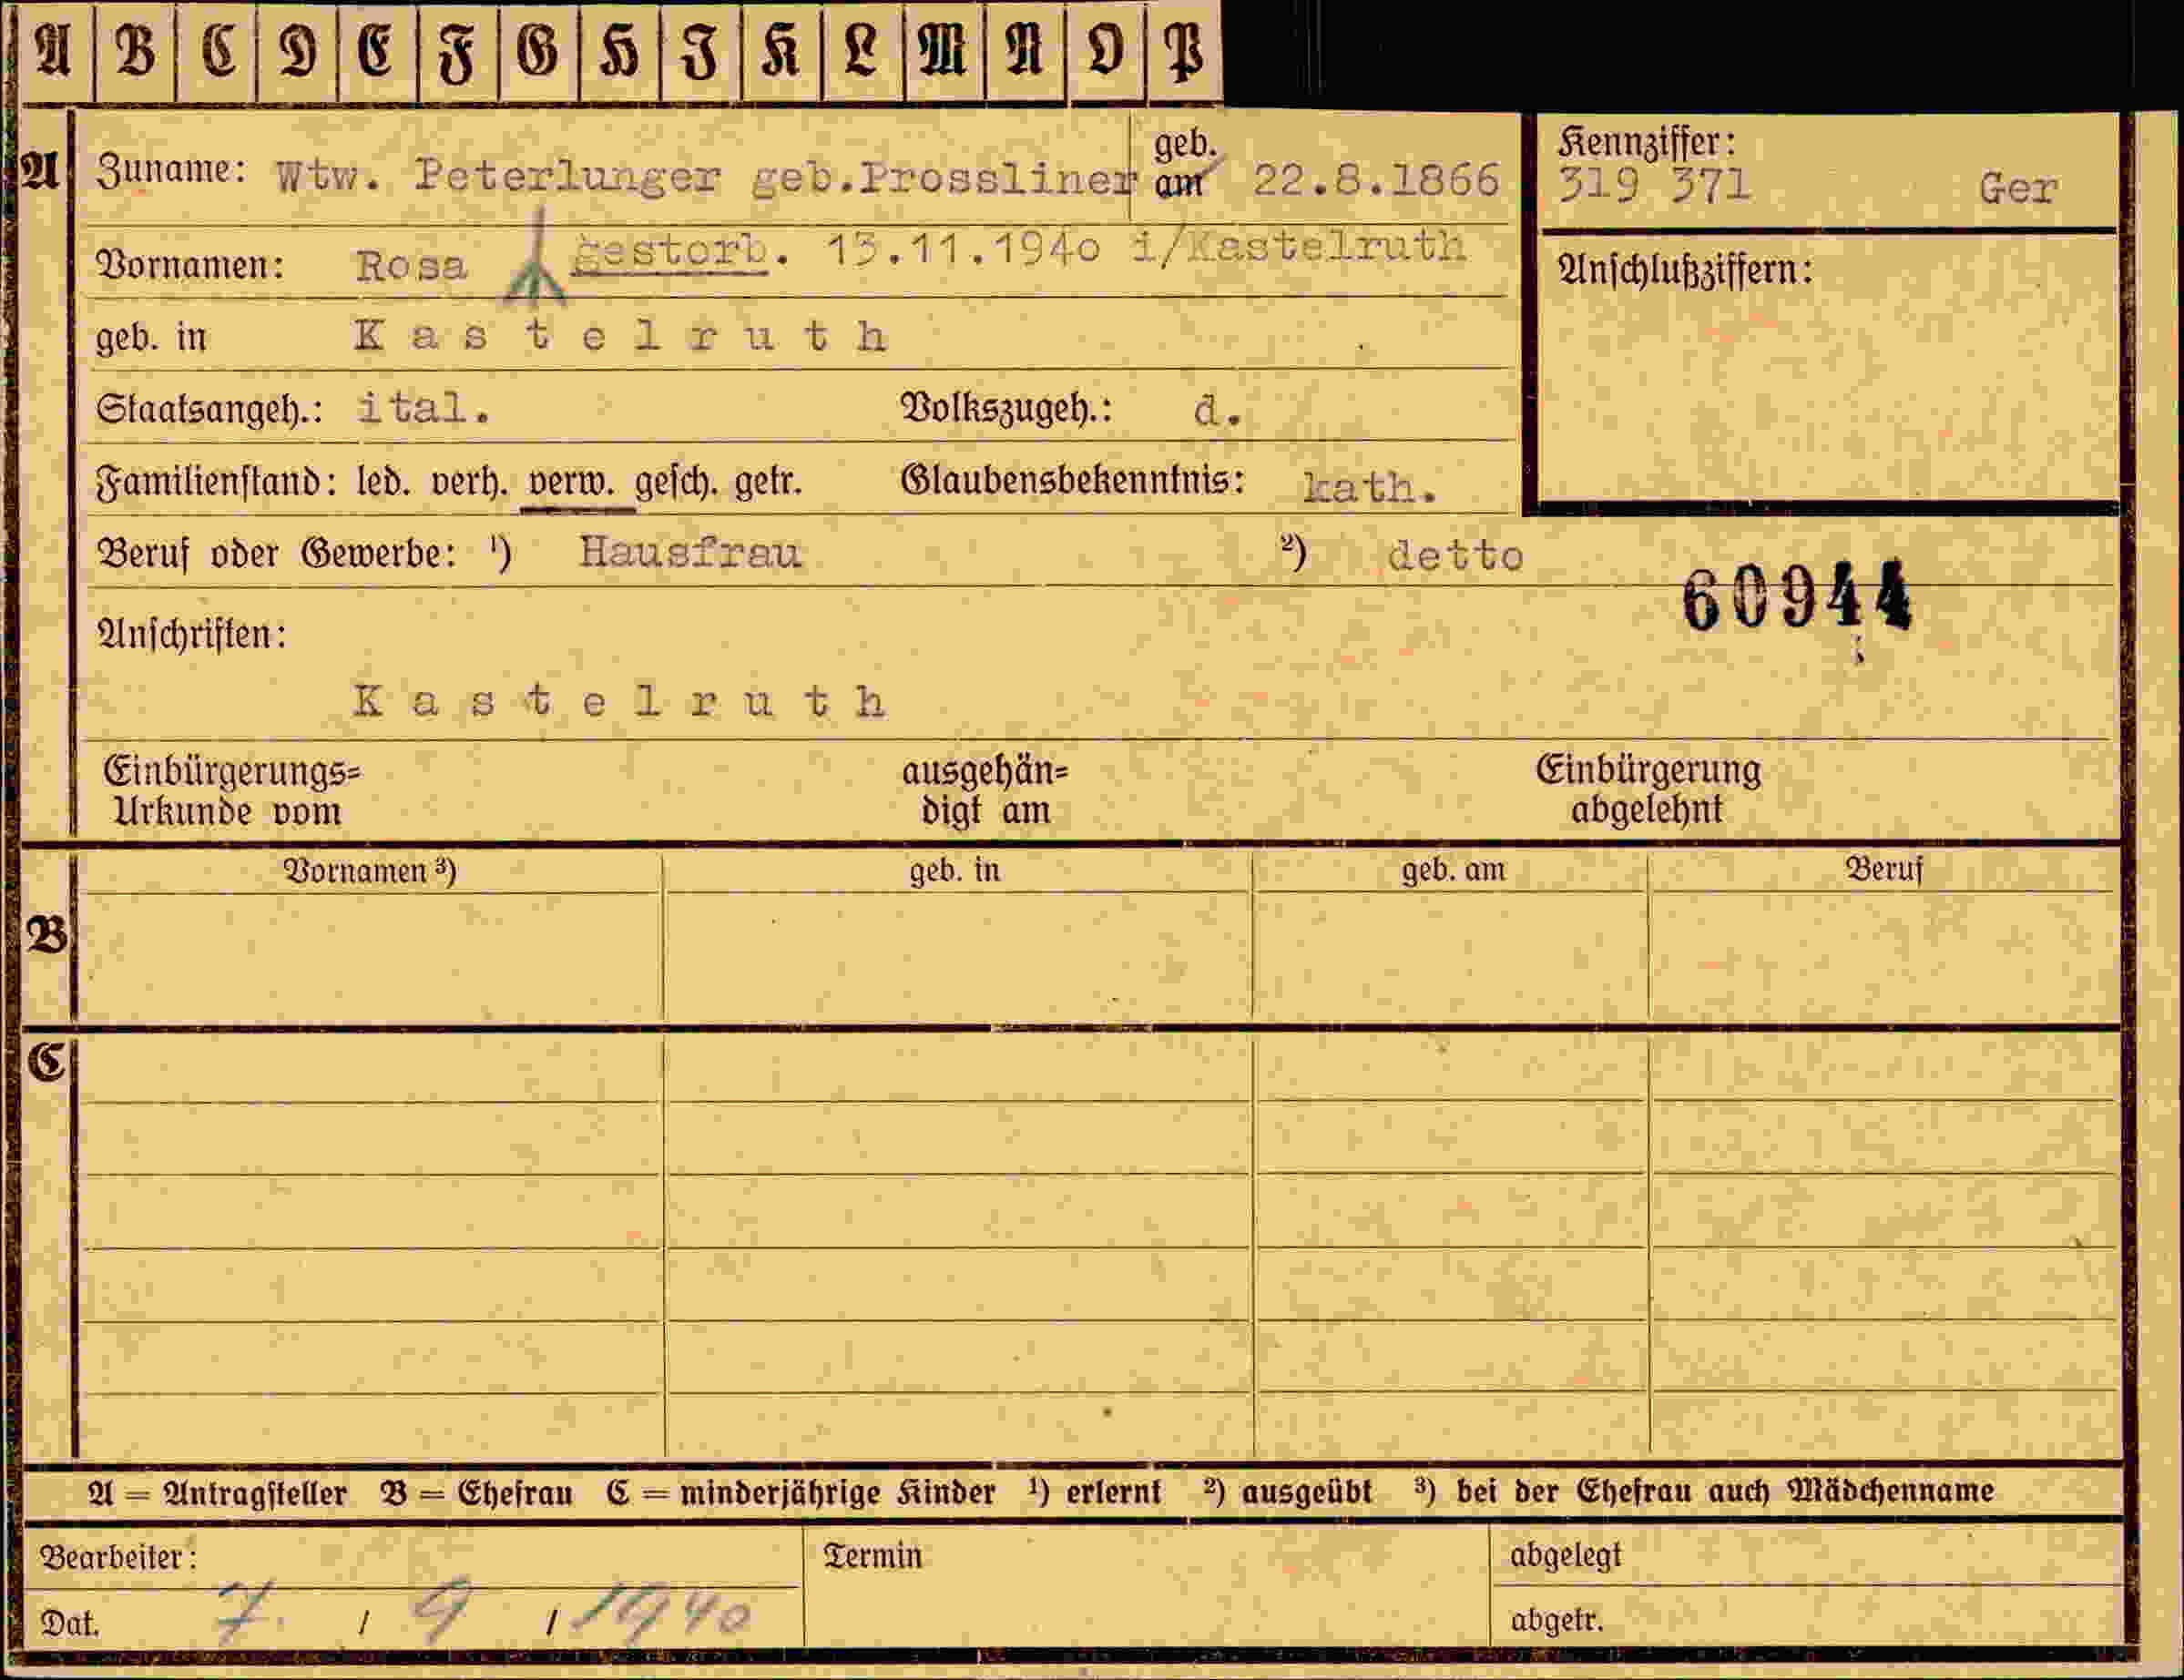 A B C D E F G H I K L M N O P
A Zuname: Wtw. Peterlunger geb.Prossliner geb. am 22.8.1866
Kennziffer:
319 371 Ger
Vornamen: Rosa gestorb. 13.11.1940 i/Kastelruth
Anschlußziffern:
geb. in K a s t e l r u t h
Staatsangeh.: ital. Volkszugeh.: d.
Familienstand: led. verh. verw. gesch. getr. Glaubensbekenntnis: kath.
Beruf oder Gewerbe: ¹) Hausfrau ²) detto
60944
Anschriften:
K a s t e l r u t h
Einbürgerungs= ausgehän= Einbürgerung
Urkunde vom digt am abgelehnt
Vornamen ³) geb. in geb. am Beruf
B
C
A = Antragsteller B = Ehefrau C = minderjährige Kinder ¹) erlernt ²) ausgeübt ³) bei der Ehefrau auch Mädchenname
Bearbeiter: Termin abgelegt
Dat. 7. / 9 / 1940 abgetr.